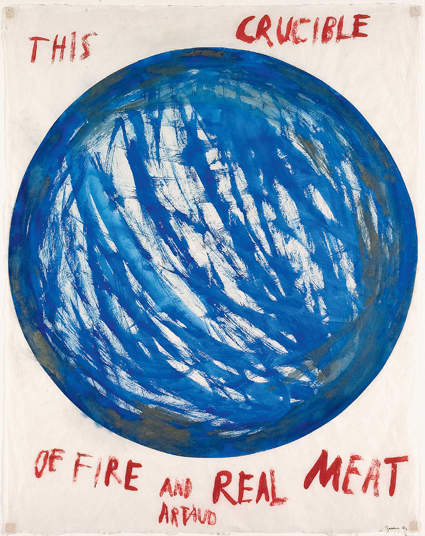 THIS CRUCIBLE
OF FIRE AND REAL MEAT
ARTAUD